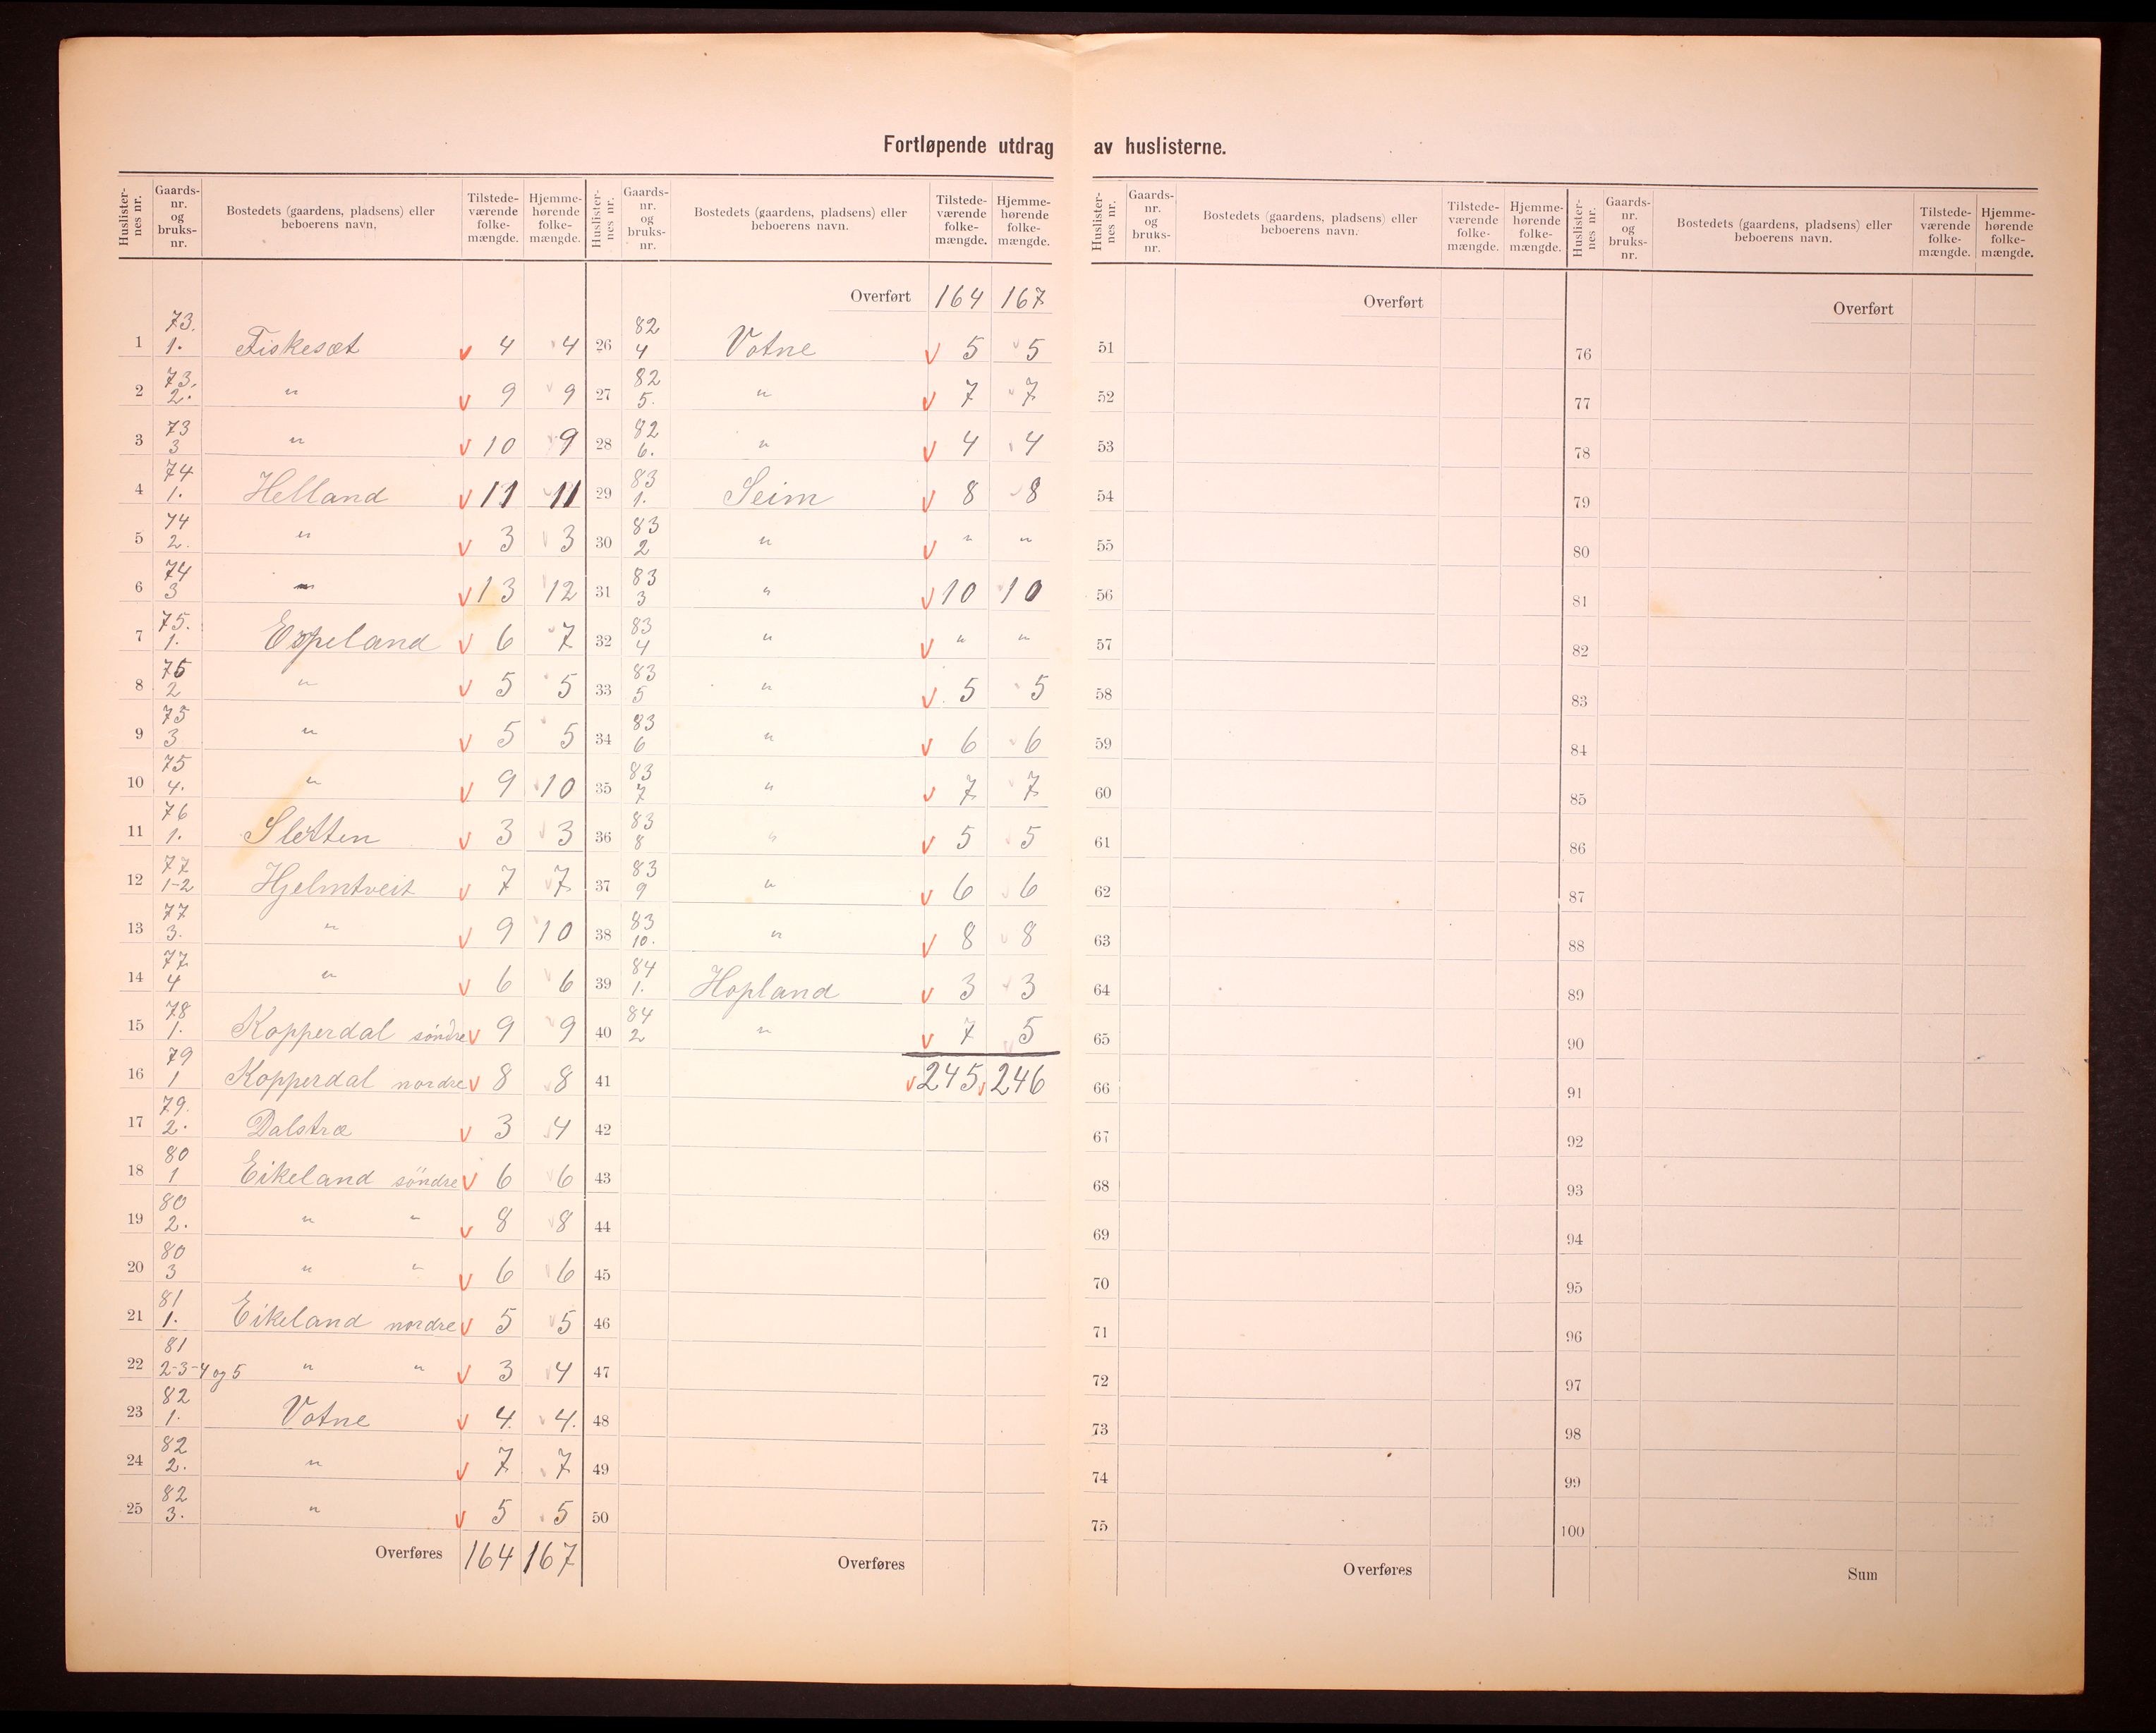 Fortløpende utdrag av huslisterne.
Huslister-nes nr. Gaards-nr. og bruks-nr. Bostedets (gaardens, pladsens) eller beboerens navn. Tilstede-værende folke-mængde. Hjemme-hørende folke-mængde.
1 73. 1. Fiskesæt 4 4
2 73. 2. " 9 9
3 73 3 " 10 9
4 74 1. Helland 11 11
5 74 2. " 3 3
6 74 3 " 13 12
7 75. 1. Espeland 6 7
8 75 2 " 5 5
9 75 3 " 5 5
10 75 4. " 9 10
11 76 1. Sletten 3 3
12 77 1-2 Hjelmtveit 7 7
13 77 3. " 9 10
14 77 4 " 6 6
15 78 1. Kopperdal söndre 9 9
16 79 1 Kopperdal nordre 8 8
17 79. 2. Dalstræ 3 4
18 80 1 Eikeland söndre 6 6
19 80 2. " " 8 8
20 80 3 " " 6 6
21 81 1. Eikeland nordre 5 5
22 81 2-3-4 og 5 " " 3 4
23 82 1. Votne 4. 4.
24 82 2. " 7 7
25 82 3. " 5 5
Overføres 164 167
Huslister-nes nr. Gaards-nr. og bruks-nr. Bostedets (gaardens, pladsens) eller beboerens navn. Tilstede-værende folke-mængde. Hjemme-hørende folke-mængde.
Overført 164 167
26 82 4 Votne 5 5
27 82 5. " 7 7
28 82 6. " 4 4
29 83 1. Seim 8 8
30 83 2 " " "
31 83 3 " 10 10
32 83 4 " " "
33 83 5 " 5 5
34 83 6 " 6 6
35 83 7 " 7 7
36 83 8 " 5 5
37 83 9 " 6 6
38 83 10. " 8 8
39 84 1. Hopland 3 3
40 84 2 " 7 5
41 245 246
42
43
44
45
46
47
48
49
50
Overføres
Huslister-nes nr. Gaards-nr. og bruks-nr. Bostedets (gaardens, pladsens) eller beboerens navn. Tilstede-værende folke-mængde. Hjemme-hørende folke-mængde.
Overført
51
52
53
54
55
56
57
58
59
60
61
62
63
64
65
66
67
68
69
70
71
72
73
74
75
Overføres
Huslister-nes nr. Gaards-nr. og bruks-nr. Bostedets (gaardens, pladsens) eller beboerens navn. Tilstede-værende folke-mængde. Hjemme-hørende folke-mængde.
Overført
76
77
78
79
80
81
82
83
84
85
86
87
88
89
90
91
92
93
94
95
96
97
98
99
100
Sum